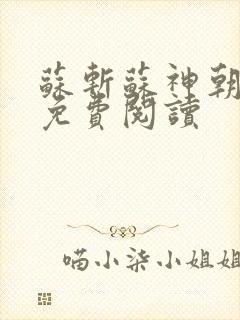 蘇斬蘇神朝
免費閱讀
喵小柒小姐姐